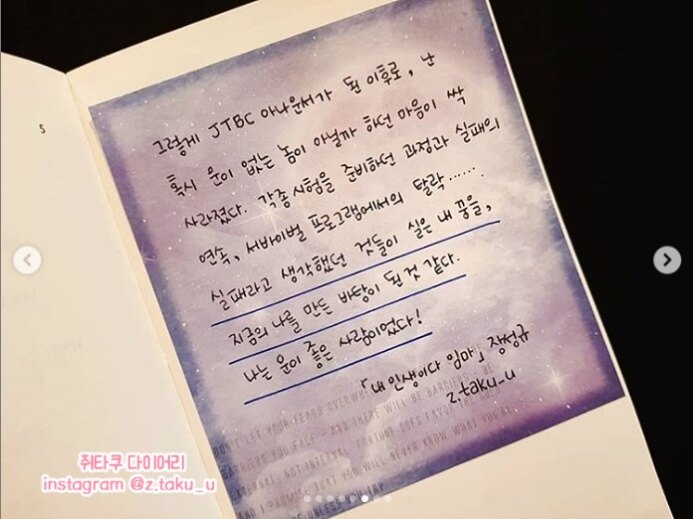 5
그렇게 JTBC 아나운서가 된 이후로, 난
혹시 운이 없는 놈이 아닐까 하던 마음이 싹
사라졌다. 각종시험을 준비하던 과정과 실패의
연속, 서바이벌 프로그램에서의 탈락······.
실패라고 생각했던 것들이 실은 내 꿈을,
지금의 나를 만든 바탕이 된 것 같다.
나는 운이 좋은 사람이었다!
「내 인생이다 임마」 장성규
z.taku_u
DON'T LET YOUR FEARS OVERWH
BARRIERS YOU FACE - AND THERE WILL BE BARRIERS - BE
EXTERNAL, NOT INTERNAL. FORTUNE DOES FAVOR THE
AND I PROMISE THAT YOU WILL NEVER KNOW WHAT YOU'
UNLESS YOU TRY
쥐타쿠 다이어리
instagram @z.taku_u